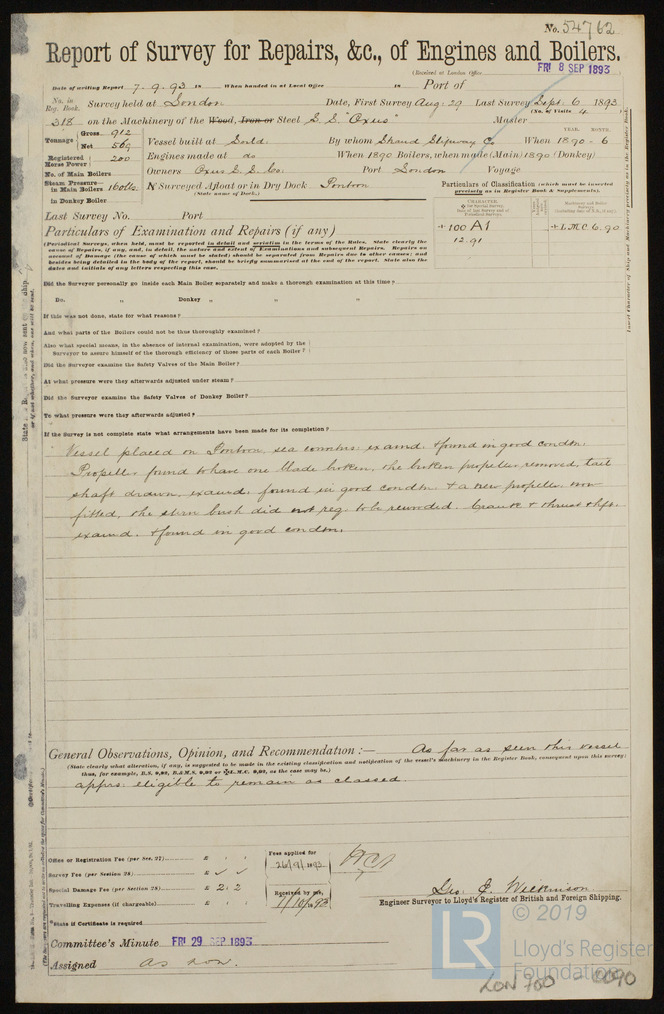 No. 54762
Report of Survey for Repairs, &c., of Engines and Boilers.
(Received at London Office FRI 8 SEP 1893)
Date of writing Report 7.9.93 is When handed in at Local Office is Port of
No. in Reg. Book. Survey held at London Date, First Survey Aug: 29 Last Survey Sept. 6 1893
(No. of Visits 4)
318 on the Machinery of the Wood, Iron or Steel S.S. "Oxus" Master
Tonnage Gross 912
Net 569
Vessel built at Sorld: By whom Strand Slipway Co When 1890-6
YEAR. MONTH.
Registered Horse Power 200
Engines made at do When 1890 Boilers, when made (Main) 1890 (Donkey)
No. of Main Boilers
Owners Oxus S.S. Co. Port London Voyage
Steam Pressure in Main Boilers 160lbs.
in Donkey Boiler
If Surveyed Afloat or in Dry Dock Pontoon
(State name of Dock.)
Particulars of Classification (which must be inserted precisely as in Register Book & Supplements).
Last Survey No. Port
CHARACTER
+100 A1
12.91
+LMC 6.90
Particulars of Examination and Repairs (if any)
(Periodical Surveys, when held, must be reported in detail and seriatim in the terms of the Rules. State clearly the
cause of Repairs, if any, and, in detail, the nature and extent of Examinations and subsequent Repairs. Repairs on
account of Damage (the cause of which must be stated) should be separated from Repairs due to other causes; and
besides being detailed in the body of the report, should be briefly summarised at the end of the report. State also the
dates and initials of any letters respecting this case.
Did the Surveyor personally go inside each Main Boiler separately and make a thorough examination at this time?
Do. „ Donkey „ „ „
If this was not done, state for what reasons?
And what parts of the Boilers could not be thus thoroughly examined?
Also what special means, in the absence of internal examination, were adopted by the
Surveyor to assure himself of the thorough efficiency of those parts of each Boiler?
Did the Surveyor examine the Safety Valves of the Main Boiler?
At what pressure were they afterwards adjusted under steam?
Did the Surveyor examine the Safety Valves of Donkey Boiler?
To what pressure were they afterwards adjusted?
If the Survey is not complete state what arrangements have been made for its completion?
Vessel placed on Pontoon, sea connctns: examd. & found in good condtn.
Propeller found to have one blade broken, the broken propeller removed, tail
shaft drawn, examd, found in good condtn & a new propeller now
fitted, the stern bush did not req. to be rewooded. Crank & thrust shfts.
examd. & found in good condtn.
General Observations, Opinion, and Recommendation:— As far as seen this vessel
(State clearly what alteration, if any, is suggested to be made in the existing classification and notification of the vessel's machinery in the Register Book, consequent upon this survey;
thus, for example, B.S. 9,92, B.&M.S. 9,92 or +L.M.C. 9,92, as the case may be.)
apprs: eligible to remain as classed.
Office or Registration Fee (per Sec. 27) £ : :
Survey Fee (per Section 28) £
Special Damage Fee (per Section 28) £ 2: 2
Travelling Expenses (if chargeable) £ : :
Fees applied for
26/9/1893
Received by me,
7/10/1893
Geo. J. Wilkinson
Engineer Surveyor to Lloyd's Register of British and Foreign Shipping.
*State if Certificate is required
Committee's Minute FRI 29 SEP 1893
Assigned as now.
LR
© 2019
Lloyd's Register
Foundation
LON 700 - 0090